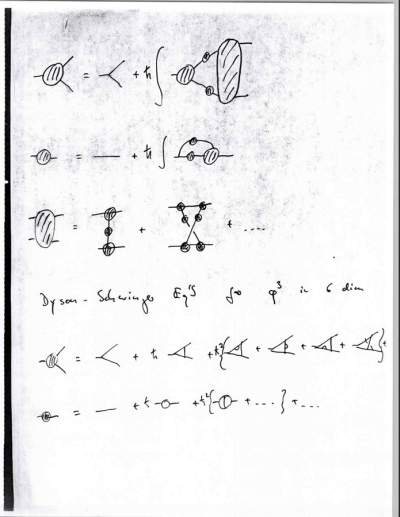 = + ħ ∫
= — + ħ ∫
= + + ....
Dyson-Schwinger Eq'S for φ³ in 6 dim
= + ħ + ħ² { + + + } +
= — + ħ + ħ² { + .... } + ...